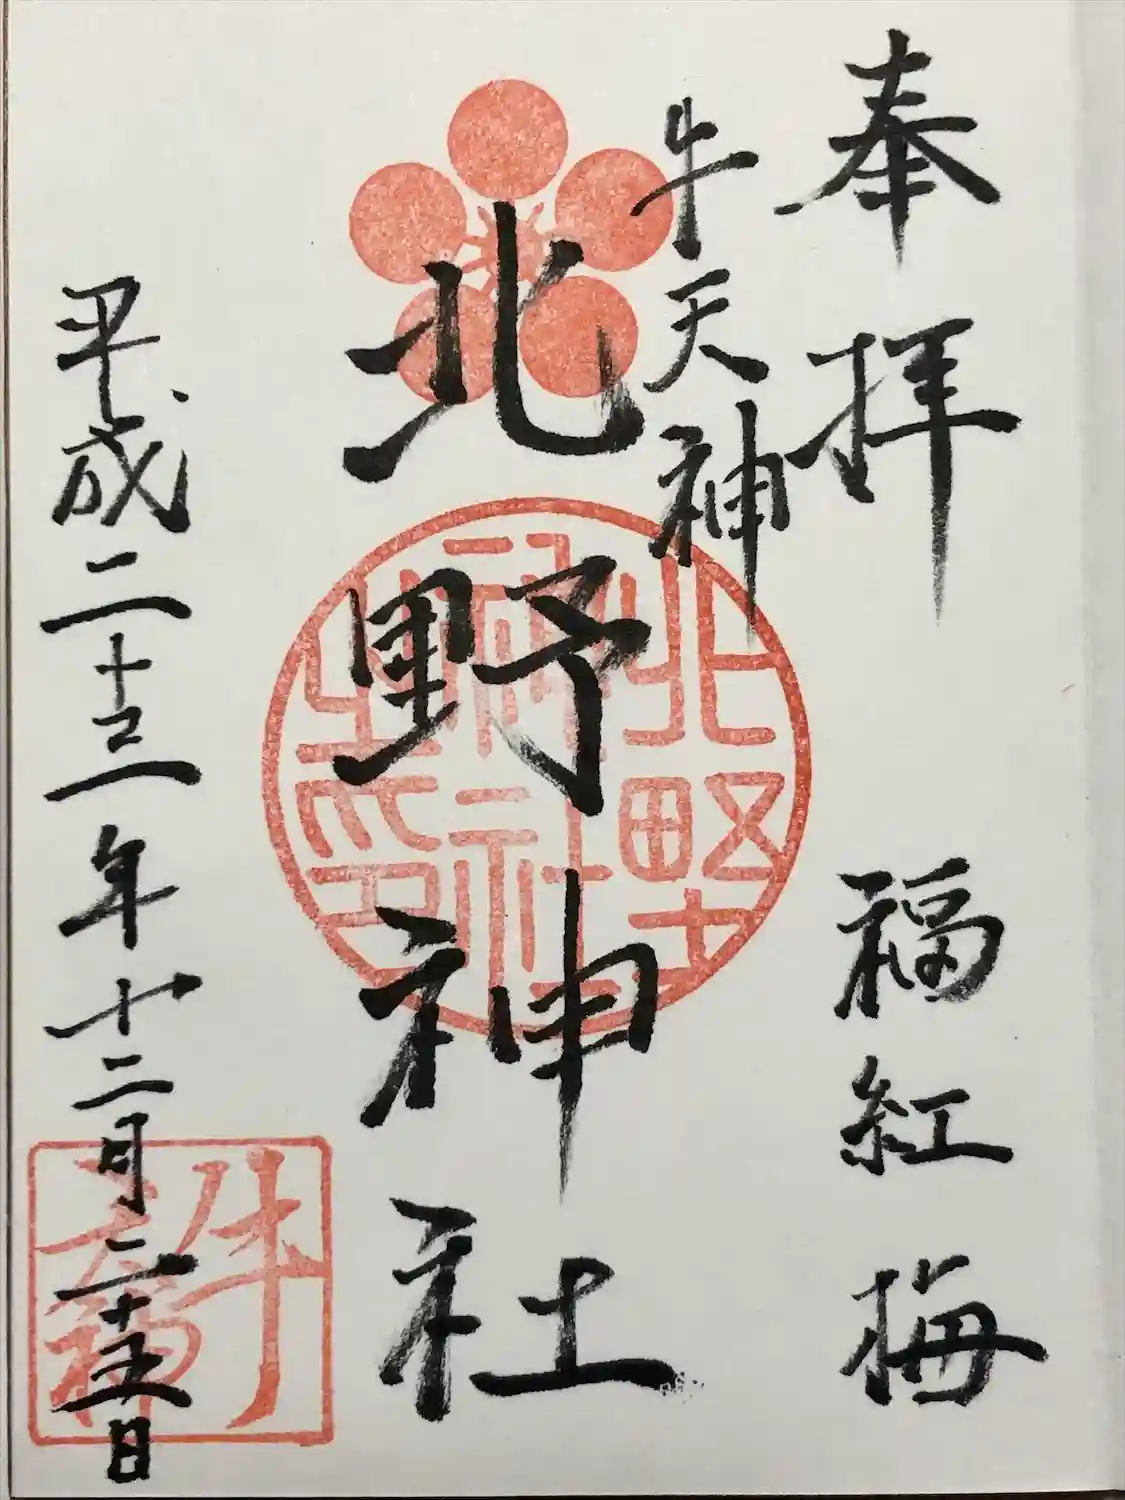 奉拝 福紅梅
牛天神
北野神社
平成二十三年十二月二十五日
北野
神社
之印
牛
天神